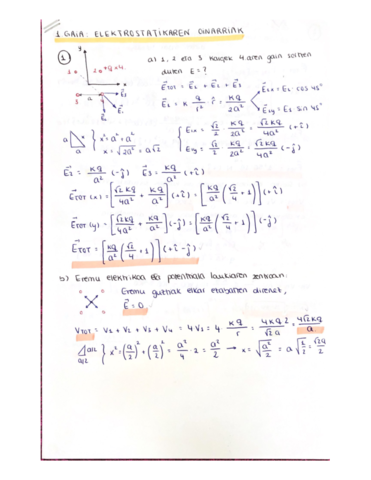 1 GAIA: ELEKTROSTATIKAREN OINARRIAK
1
a) 1, 2 eta 3 kargek 4.aren gain sortzen
duten E = ?
E⃗TOT = E⃗1 + E⃗2 + E⃗3
E⃗1 = K q/r² r̂ = Kq/2a²
E1x = E1 cos 45º
E1y = E1 sin 45º
x² = a² + a²
x = √2a² = a√2
E1x = √2/2 Kq/2a² = √2 Kq/4a² (+i)
E1y = √2/2 Kq/2a² = √2 Kq/4a² (-j)
E⃗2 = Kq/a² (-j) E⃗3 = Kq/a² (+i)
E⃗TOT (x) = [√2 Kq/4a² + Kq/a²] (+i) = [Kq/a² (√2/4 + 1)] (+i)
E⃗TOT (y) = [√2 Kq/4a² + Kq/a²] (-j) = [Kq/a² (√2/4 + 1)] (-j)
E⃗TOT = [Kq/a² (√2/4 + 1)] (+i - j)
b) Eremu elektrikoa eta potentziala laukiaren zentroan.
Eremu guztiak elkar
E⃗ = 0
VTOT = V1 + V2 + V3 + V4 = 4V1 = 4 Kq/r = 4Kq 2/√2 a = 4√2 Kq/a
a/2
a/2
x² = (a/2)² + (a/2)² = a²/4 · 2 = a²/2 → x = √a²/2 = a √1/2 = √2a/2